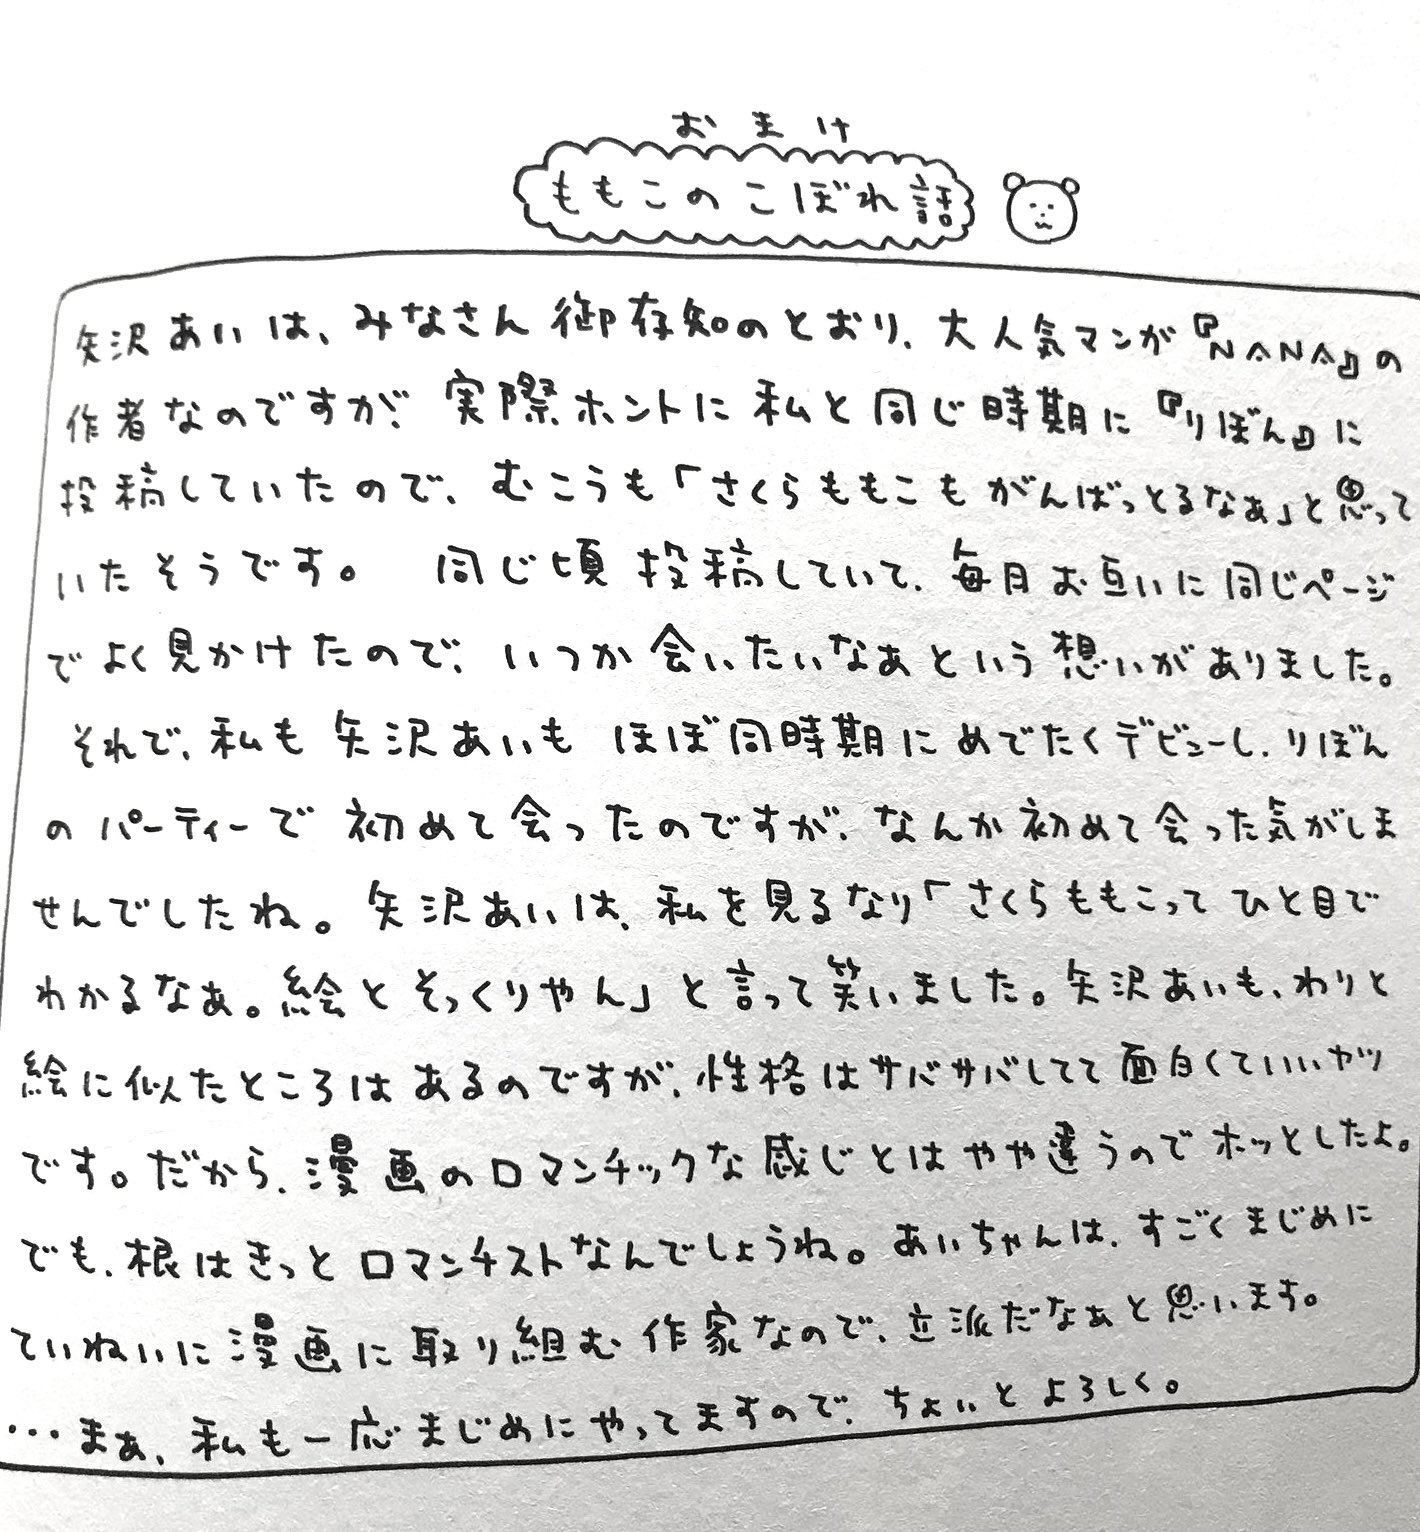 おまけ
ももこのこぼれ話
矢沢あいは、みなさん御存知のとおり、大人気マンガ『NANA』の
作者なのですが、実際ホントに私と同じ時期に『りぼん』に
投稿していたので、むこうも「さくらももこもがんばっとるなぁ」と思って
いたそうです。 同じ頃投稿していて、毎月お互いに同じページ
でよく見かけたので、いつか会いたいなあという想いがありました。
それで、私も矢沢あいもほぼ同時期にめでたくデビューし、りぼん
のパーティーで初めて会ったのですが、なんか初めて会った気がしま
せんでしたね。矢沢あいは、私を見るなり「さくらももこってひと目で
わかるなぁ。絵とそっくりやん」と言って笑いました。矢沢あいも、わりと
絵に似たところはあるのですが、性格はサバサバしてて面白くていいヤツ
です。だから、漫画のロマンチックな感じとはやや違うのでホッとしたよ。
でも、根はきっとロマンチストなんでしょうね。あいちゃんは、すごくまじめに
ていねいに漫画に取り組む作家なので、立派だなぁと思います。
…まぁ、私も一応まじめにやってますので、ちょいとよろしく。